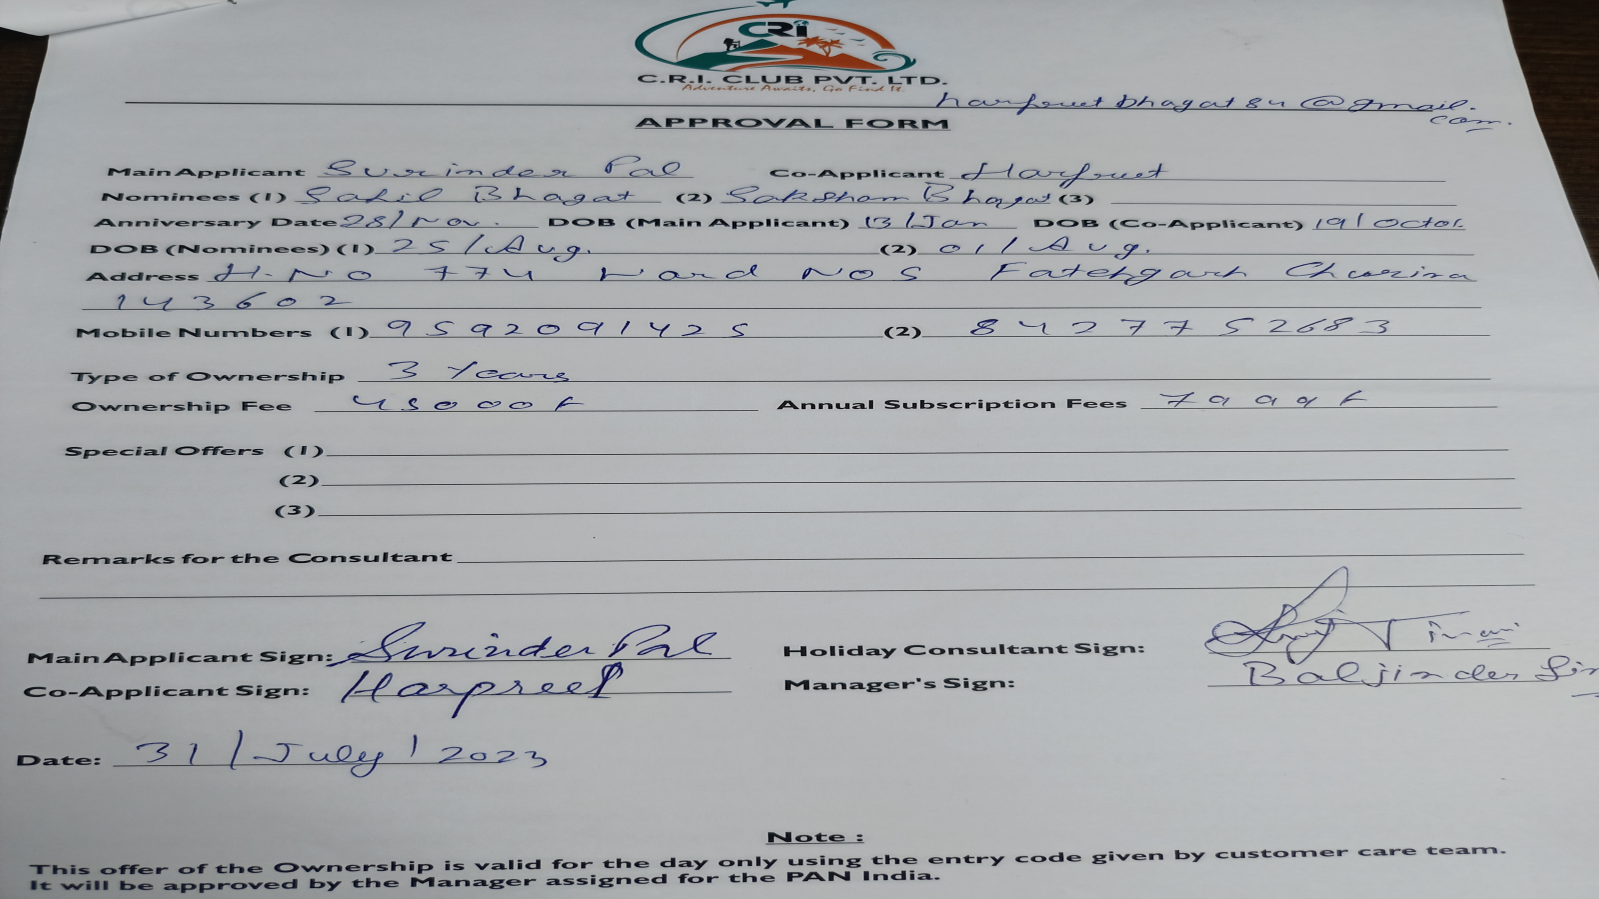 CRi
C.R.I. CLUB PVT. LTD.
Adventure Awaits, Go Find It.
harpreetbhagat84@gmail.
com.
APPROVAL FORM
Main Applicant Surinder Pal Co-Applicant Harpreet
Nominees (1) Sahil Bhagat (2) Saksham Bhagat (3)
Anniversary Date 28/Nov. DOB (Main Applicant) 13/Jan DOB (Co-Applicant) 19/Octo.
DOB (Nominees) (1) 25/Aug. (2) 01/Aug.
Address H.NO 774 Ward NO 5 Fatehgarh Churina
143602
Mobile Numbers (1) 9592091425 (2) 84277 52683
Type of Ownership 3 Years
Ownership Fee 45000 Annual Subscription Fees 7999
Special Offers (1)
(2)
(3)
Remarks for the Consultant
Main Applicant Sign: Surinder Pal Holiday Consultant Sign:
Co-Applicant Sign: Harpreet Manager's Sign: Baljinder
Date: 31/July/2023
Note :
This offer of the Ownership is valid for the day only using the entry code given by customer care team.
It will be approved by the Manager assigned for the PAN India.